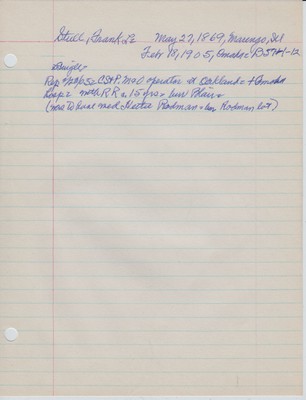 Still, Frank L2 May 27, 1869, Marengo, Ill
Feb 18, 1905, Omaha B57H-12
single
Rep 2/20/05 = CStP. M & O operator at Oakland + Omaha
with R R c 15 yrs = bur Blair
(mo to have med Hester Rodman = bur Rodman lot)